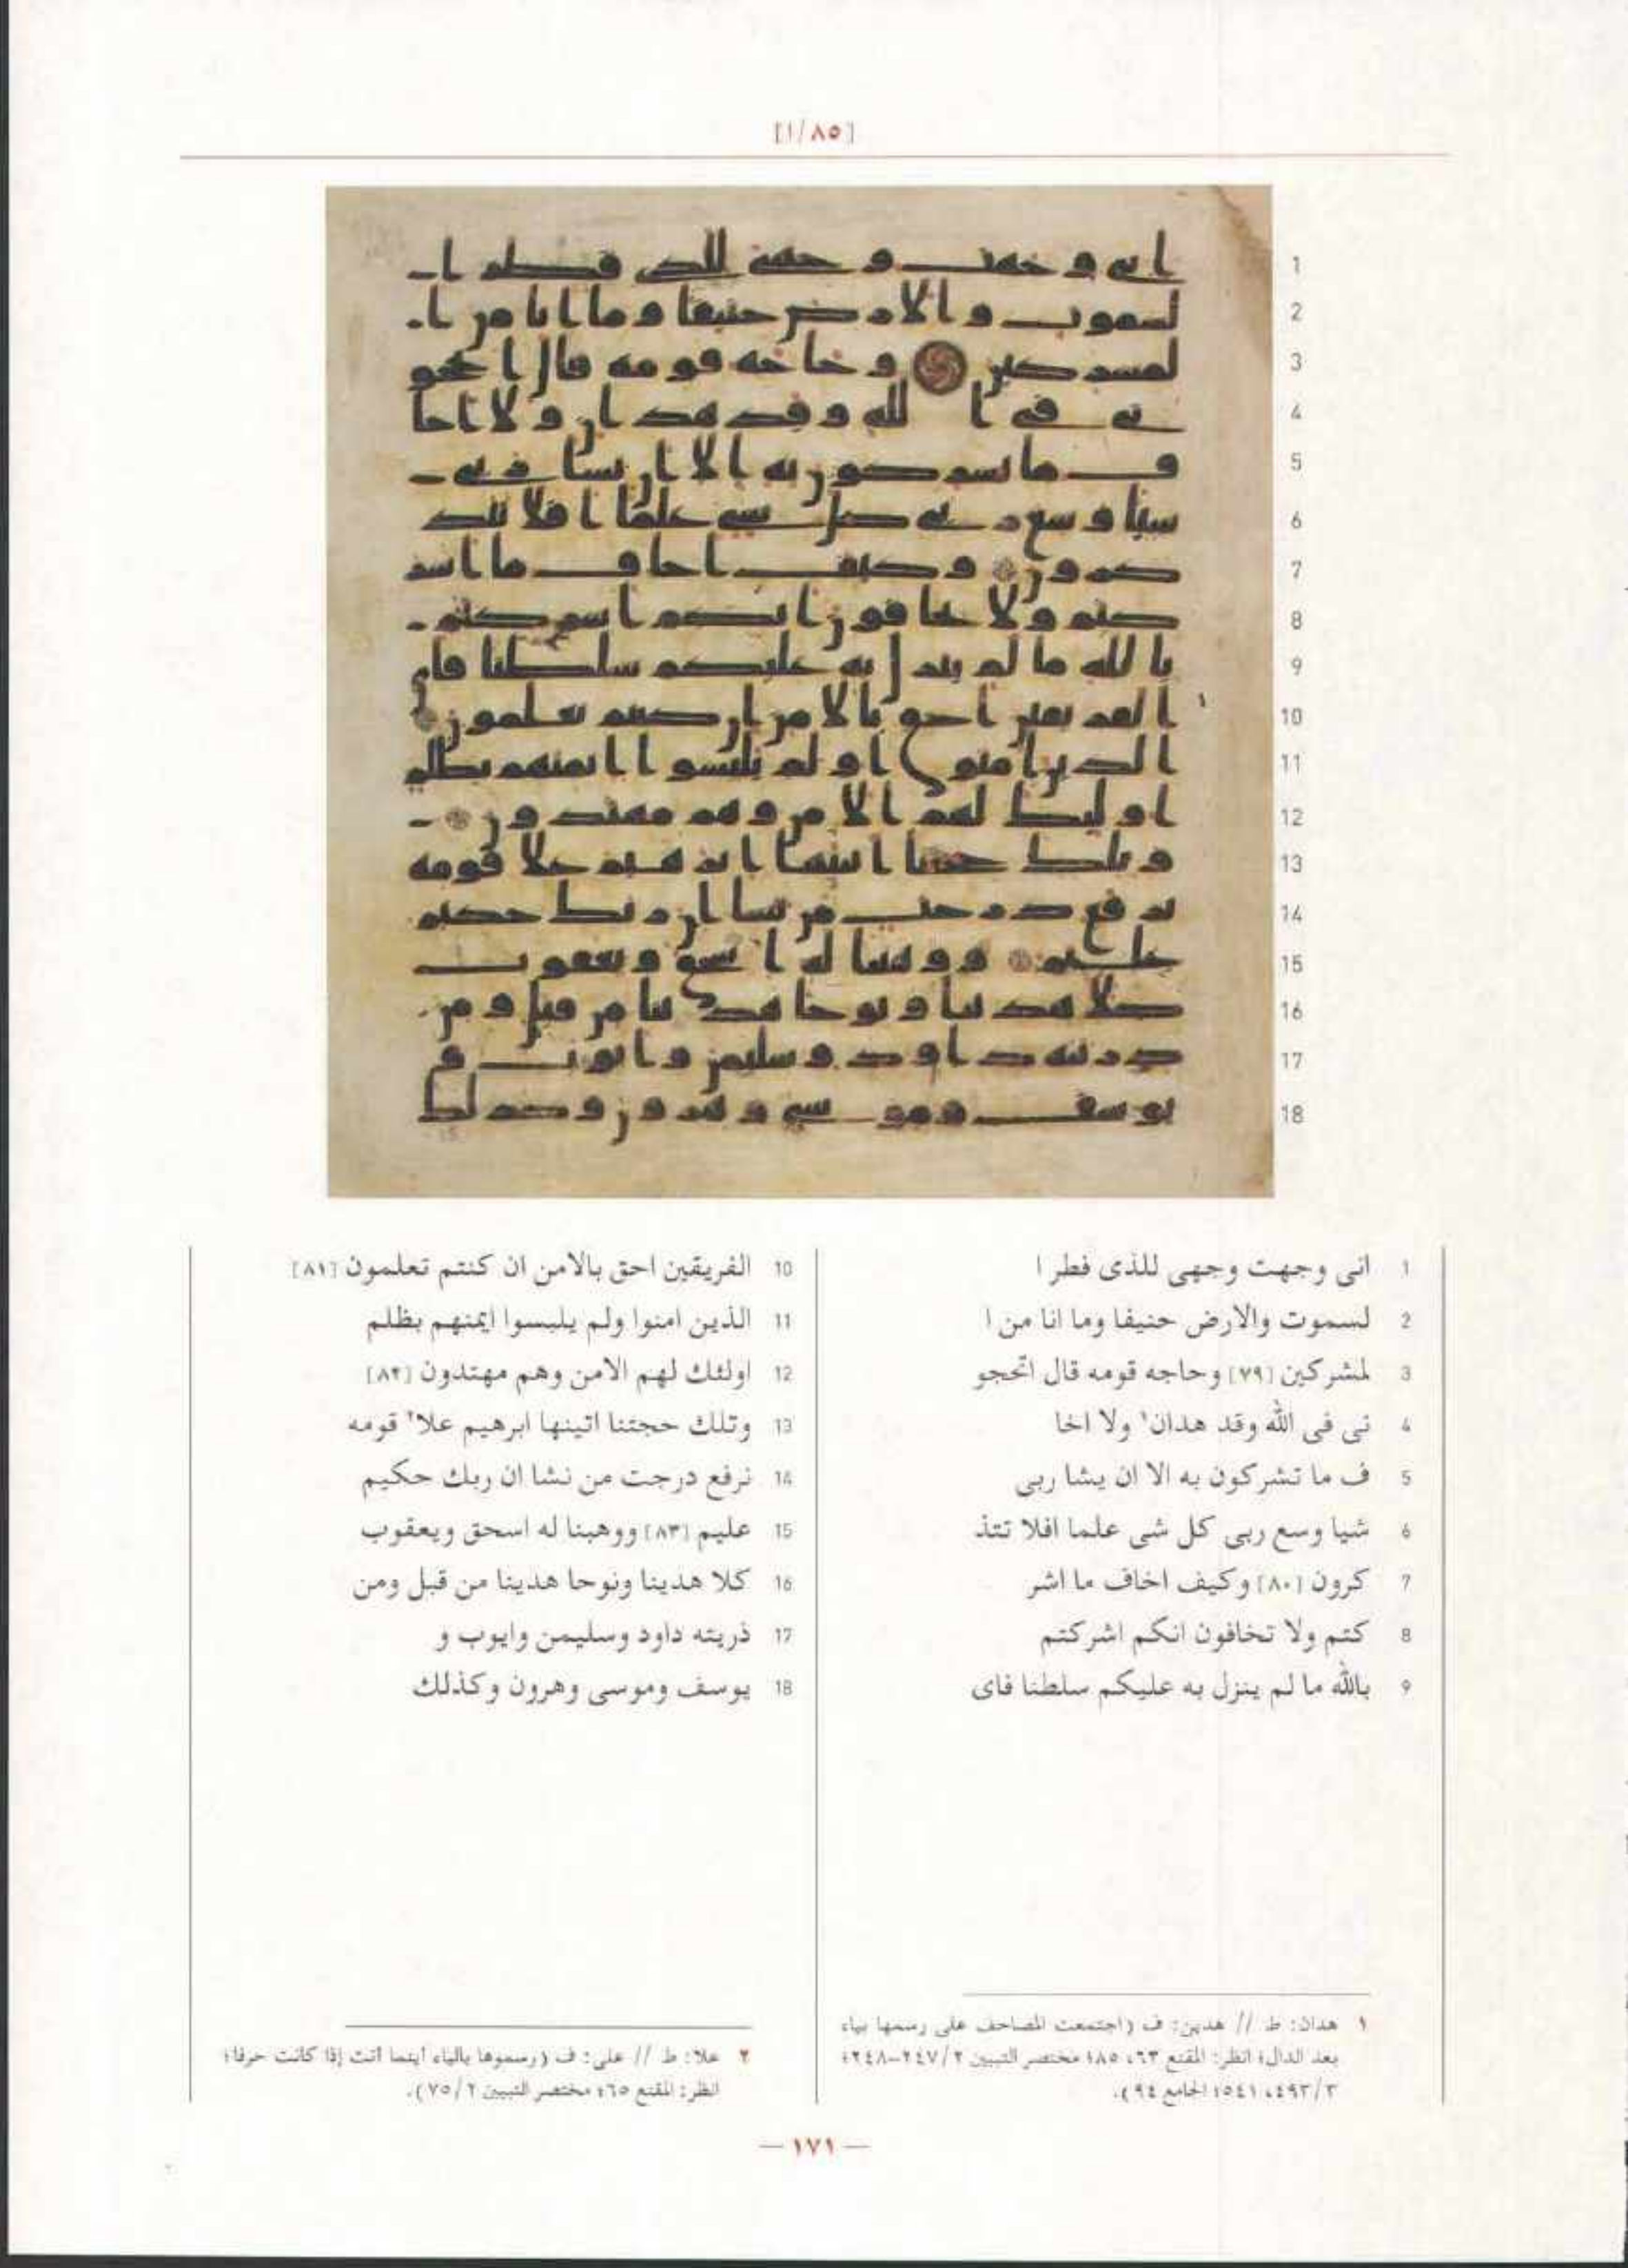 [١/٨٥]
1 انى وجهت وجهى للذى فطر ا
2 لسموت والارض حنيفا وما انا من ا
3 لمشركين [٧٩] وحاجه قومه قال اتحجو
4 نى فى الله وقد هدان١ ولا اخا
5 ف ما تشركون به الا ان يشا ربى
6 شيا وسع ربى كل شى علما افلا تتذ
7 كرون [٨٠] وكيف اخاف ما اشر
8 كتم ولا تخافون انكم اشركتم
9 بالله ما لم ينزل به عليكم سلطنا فاى
10 الفريقين احق بالامن ان كنتم تعلمون [٨١]
11 الذين امنوا ولم يلبسوا ايمنهم بظلم
12 اولئك لهم الامن وهم مهتدون [٨٢]
13 وتلك حجتنا اتينها ابرهيم علا٢ قومه
14 نرفع درجت من نشا ان ربك حكيم
15 عليم [٨٣] ووهبنا له اسحق ويعقوب
16 كلا هدينا ونوحا هدينا من قبل ومن
17 ذريته داود وسليمن وايوب و
18 يوسف وموسى وهرون وكذلك
١ هدان: ط // هدين: ف (اجتمعت المصاحف على رسمها بياء
بعد الدال؛ انظر: المقنع ٦٣، ٨٥؛ مختصر التبيين ٢/ ٢٤٧-٢٤٨؛
٣/ ٤٩٣، ٥٤١؛ الجامع ٩٤).
٢ علا: ط // على: ف (رسموها بالياء اينما اتت إذا كانت حرفا؛
انظر: المقنع ٦٥؛ مختصر التبيين ٢/ ٧٥).
— ١٧١ —